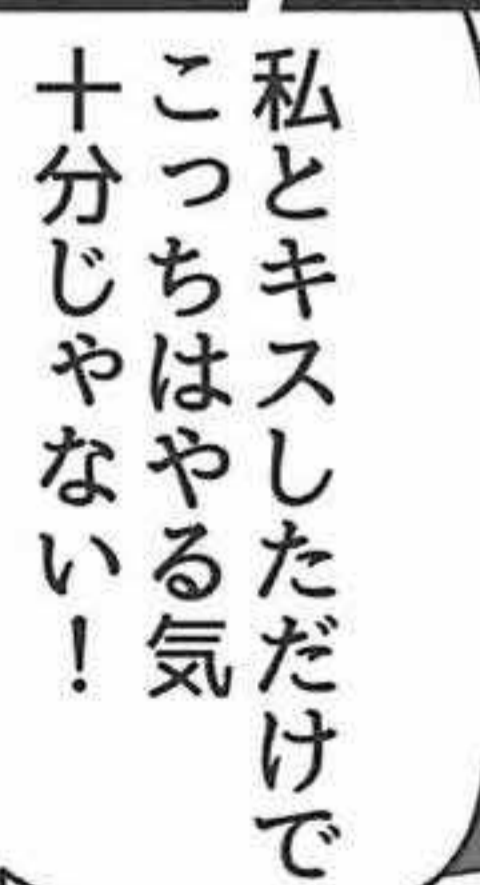 私とキスしただけで
こっちはやる気
十分じゃない！